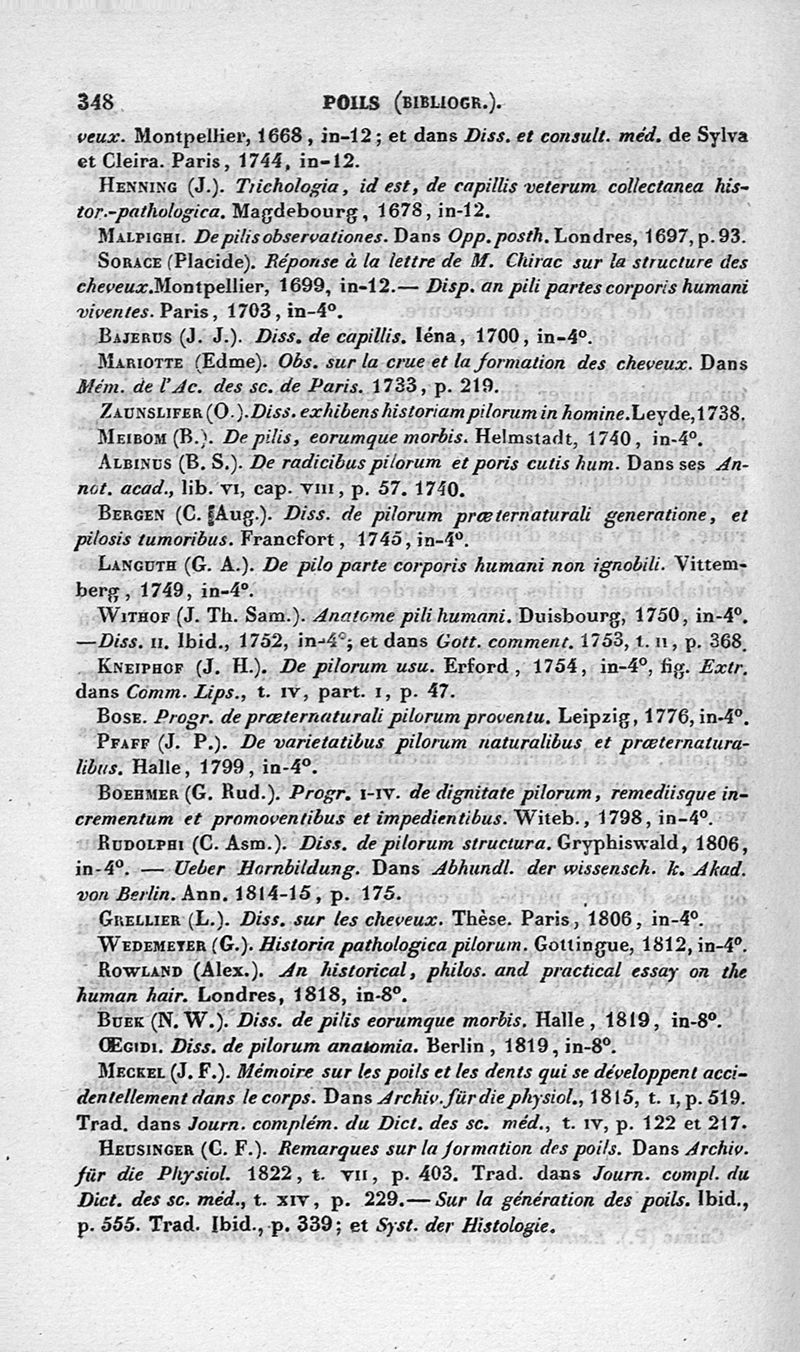 348 POILS (BIBLIOGR.).
veux. Montpellier, 1668, in-12; et dans Diss. et consult. méd. de Sylva
et Cleira. Paris, 1744, in-12.
HENNING (J.). Trichologia, id est, de capillis veterum collectanea his-
tor.-pathologica. Magdebourg, 1678, in-12.
MALPIGHI. De pilis observationes. Dans Opp. posth. Londres, 1697, p. 93.
SORACE (Placide). Réponse à la lettre de M. Chirac sur la structure des
cheveux. Montpellier, 1699, in-12.— Disp. an pili partes corporis humani
viventes. Paris, 1703, in-4°.
BAJERUS (J. J.). Diss. de capillis. Iéna, 1700, in-4°.
MARIOTTE (Edme). Obs. sur la crue et la formation des cheveux. Dans
Mém. de l'Ac. des sc. de Paris. 1733, p. 219.
ZAUNSLIFER (O.). Diss. exhibens historiam pilorum in homine. Leyde, 1738.
MEIBOM (B.). De pilis, eorumque morbis. Helmstadt, 1740, in-4°.
ALBINUS (B. S.). De radicibus pilorum et poris cutis hum. Dans ses An-
not. acad., lib. VI, cap. VIII, p. 57. 1740.
BERGEN (C. Aug.). Diss. de pilorum præternaturali generatione, et
pilosis tumoribus. Francfort, 1745, in-4°.
LANGUTH (G. A.). De pilo parte corporis humani non ignobili. Vittem-
berg, 1749, in-4°.
WITHOF (J. Th. Sam.). Anatome pili humani. Duisbourg, 1750, in-4°.
—Diss. II. Ibid., 1752, in-4°; et dans Gott. comment. 1753, t. II, p. 368.
KNEIPHOF (J. H.). De pilorum usu. Erford, 1754, in-4°, fig. Extr.
dans Comm. Lips., t. IV, part. I, p. 47.
BOSE. Progr. de præternaturali pilorum proventu. Leipzig, 1776, in-4°.
PFAFF (J. P.). De varietatibus pilorum naturalibus et præternatura-
libus. Halle, 1799, in-4°.
BOEHMER (G. Rud.). Progr. I-IV. de dignitate pilorum, remediisque in-
crementum et promoventibus et impedientibus. Witeb., 1798, in-4°.
RUDOLPHI (C. Asm.). Diss. de pilorum structura. Gryphiswald, 1806,
in-4°. — Ueber Hornbildung. Dans Abhundl. der wissensch. k. Akad.
von Berlin. Ann. 1814-15, p. 175.
GRELLIER (L.). Diss. sur les cheveux. Thèse. Paris, 1806, in-4°.
WEDEMEYER (G.). Historia pathologica pilorum. Gottingue, 1812, in-4°.
ROWLAND (Alex.). An historical, philos. and practical essay on the
human hair. Londres, 1818, in-8°.
BUEK (N. W.). Diss. de pilis eorumque morbis. Halle, 1819, in-8°.
ŒGIDI. Diss. de pilorum anatomia. Berlin, 1819, in-8°.
MECKEL (J. F.). Mémoire sur les poils et les dents qui se développent acci-
dentellement dans le corps. Dans Archiv. für die physiol., 1815, t. I, p. 519.
Trad. dans Journ. complém. du Dict. des sc. méd., t. IV, p. 122 et 217.
HEUSINGER (C. F.). Remarques sur la formation des poils. Dans Archiv.
für die Physiol. 1822, t. VII, p. 403. Trad. dans Journ. compl. du
Dict. des sc. méd., t. XIV, p. 229.— Sur la génération des poils. Ibid.,
p. 555. Trad. Ibid., p. 339; et Syst. der Histologie.